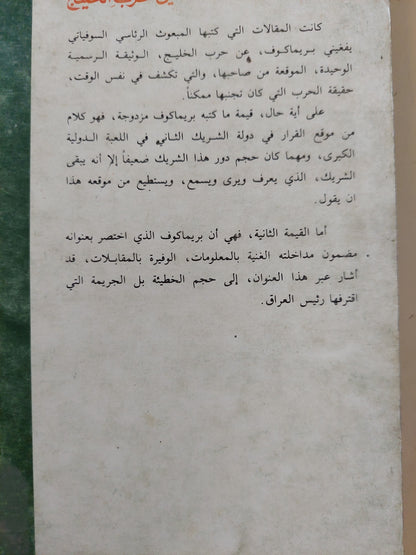 حرب الخليج
كانت المقالات التي كتبها المبعوث الرئاسي السوفياتي
يفغيني بريماكوف، عن حرب الخليج، الوثيقة الرسمية
الوحيدة، الموقعة من صاحبها، والتي تكشف في نفس الوقت،
حقيقة الحرب التي كان تجنبها ممكناً.
على أية حال، قيمة ما كتبه بريماكوف مزدوجة، فهو كلام
من موقع القرار في دولة الشريك الثاني في اللعبة الدولية
الكبرى، ومهما كان حجم دور هذا الشريك ضعيفاً إلا أنه يبقى
الشريك، الذي يعرف ويرى ويسمع، ويستطيع من موقعه هذا
ان يقول.
أما القيمة الثانية، فهي أن بريماكوف الذي اختصر بعنوانه
مضمون مداخلته الغنية بالمعلومات، الوفيرة بالمقابلات، قد
أشار عبر هذا العنوان، إلى حجم الخطيئة بل الجريمة التي
اقترفها رئيس العراق.